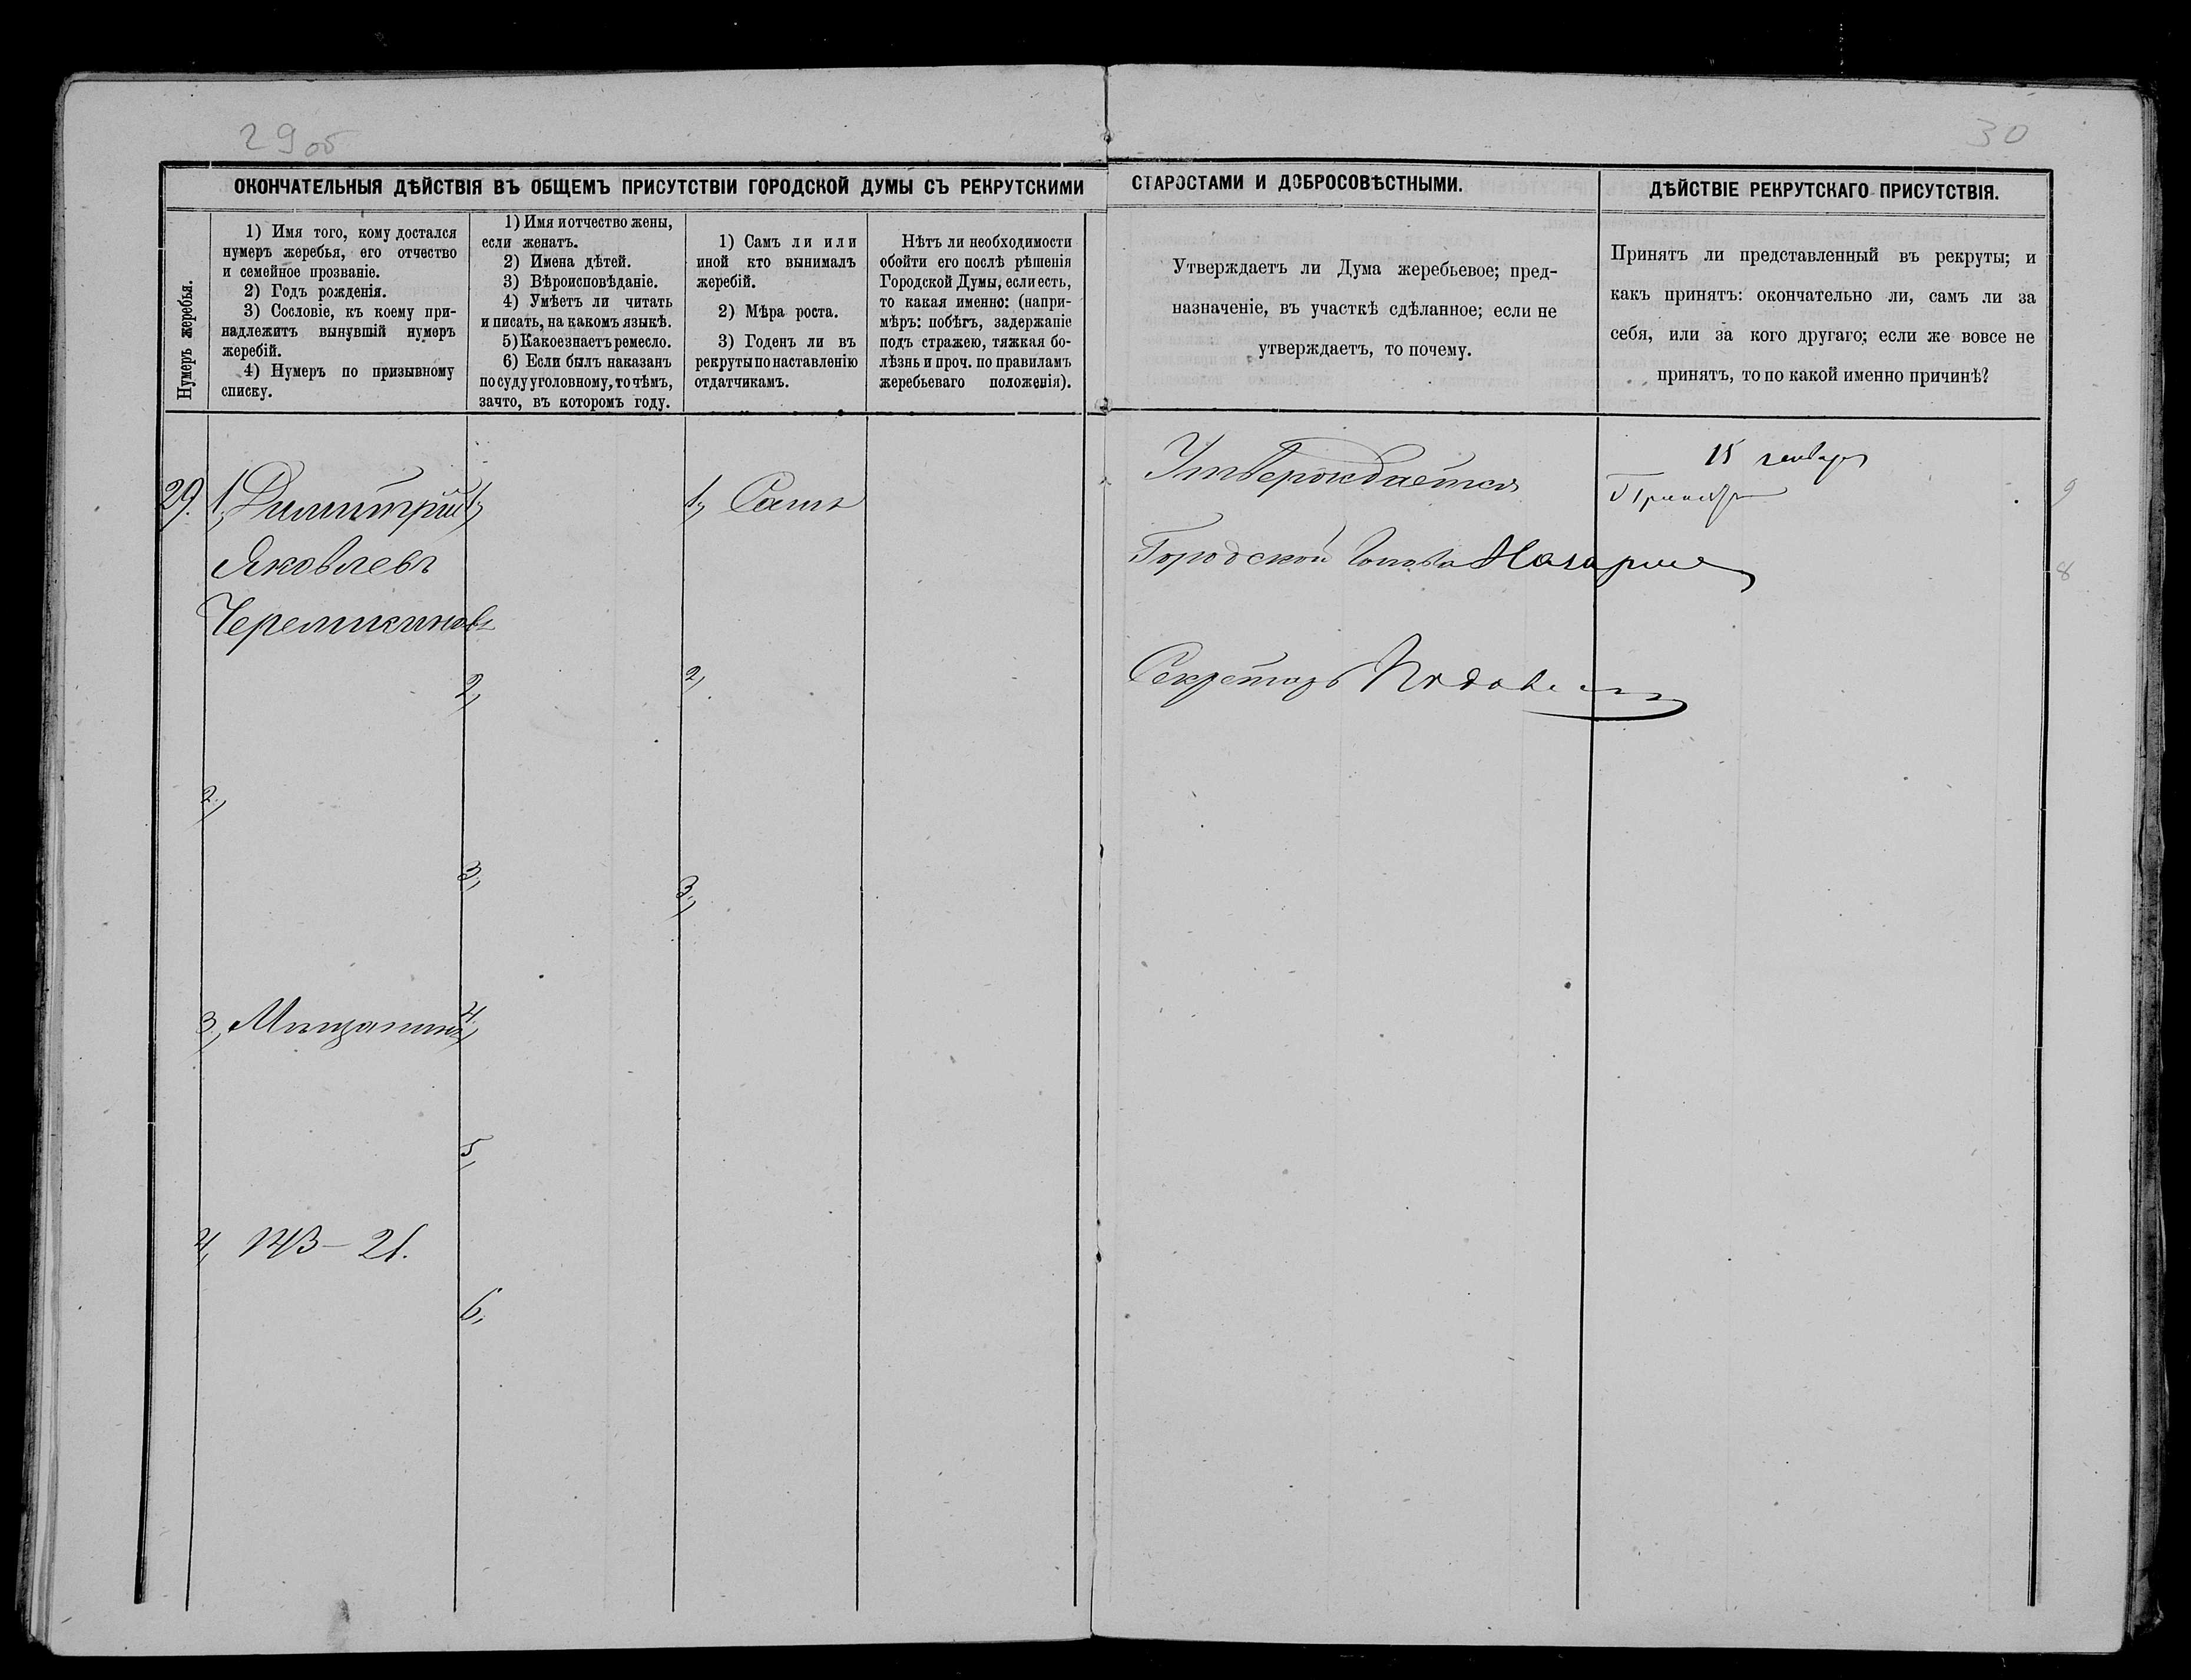 29 об
30
ОКОНЧАТЕЛЬНЫЯ ДѢЙСТВІЯ ВЪ ОБЩЕМЪ ПРИСУТСТВІИ ГОРОДСКОЙ ДУМЫ СЪ РЕКРУТСКИМИ
СТАРОСТАМИ И ДОБРОСОВѢСТНЫМИ.
ДѢЙСТВІЕ РЕКРУТСКАГО ПРИСУТСТВІЯ.
Нумеръ жеребья.
1) Имя того, кому достался
нумеръ жеребья, его отчество
и семейное прозваніе.
2) Годъ рожденія.
3) Сословіе, къ коему при-
надлежитъ вынувшій нумеръ
жеребій.
4) Нумеръ по призывному
списку.
1) Имя и отчество жены,
если женатъ.
2) Имена дѣтей.
3) Вѣроисповѣданіе.
4) Умѣетъ ли читать
и писать, на какомъ языкѣ.
5) Какое знаетъ ремесло.
6) Если былъ наказанъ
по суду уголовному, то чѣмъ,
зачто, въ которомъ году.
1) Самъ ли или
иной кто вынималъ
жеребій.
2) Мѣра роста.
3) Годенъ ли въ
рекруты по наставленію
отдатчикамъ.
Нѣтъ ли необходимости
обойти его послѣ рѣшенія
Городской Думы, если есть,
то какая именно: (напри-
мѣръ: побѣгъ, задержаніе
подъ стражею, тяжкая бо-
лѣзнь и проч. по правиламъ
жеребьеваго положенія).
Утверждаетъ ли Дума жеребьевое; пред-
назначеніе, въ участкѣ сдѣланное; если не
утверждаетъ, то почему.
Принятъ ли представленный въ рекруты; и
какъ принятъ: окончательно ли, самъ ли за
себя, или за кого другаго; если же вовсе не
принятъ, то по какой именно причинѣ?
29.
1, Димитрій
Яковлевъ
Черемикиновъ
2,
3, Мѣщанинъ
4, 143 – 21.
1,
2,
3,
4,
5,
6,
1, Самъ
2,
3,
Утверждается
Городской Голова
Секретарь
15 января
9
8